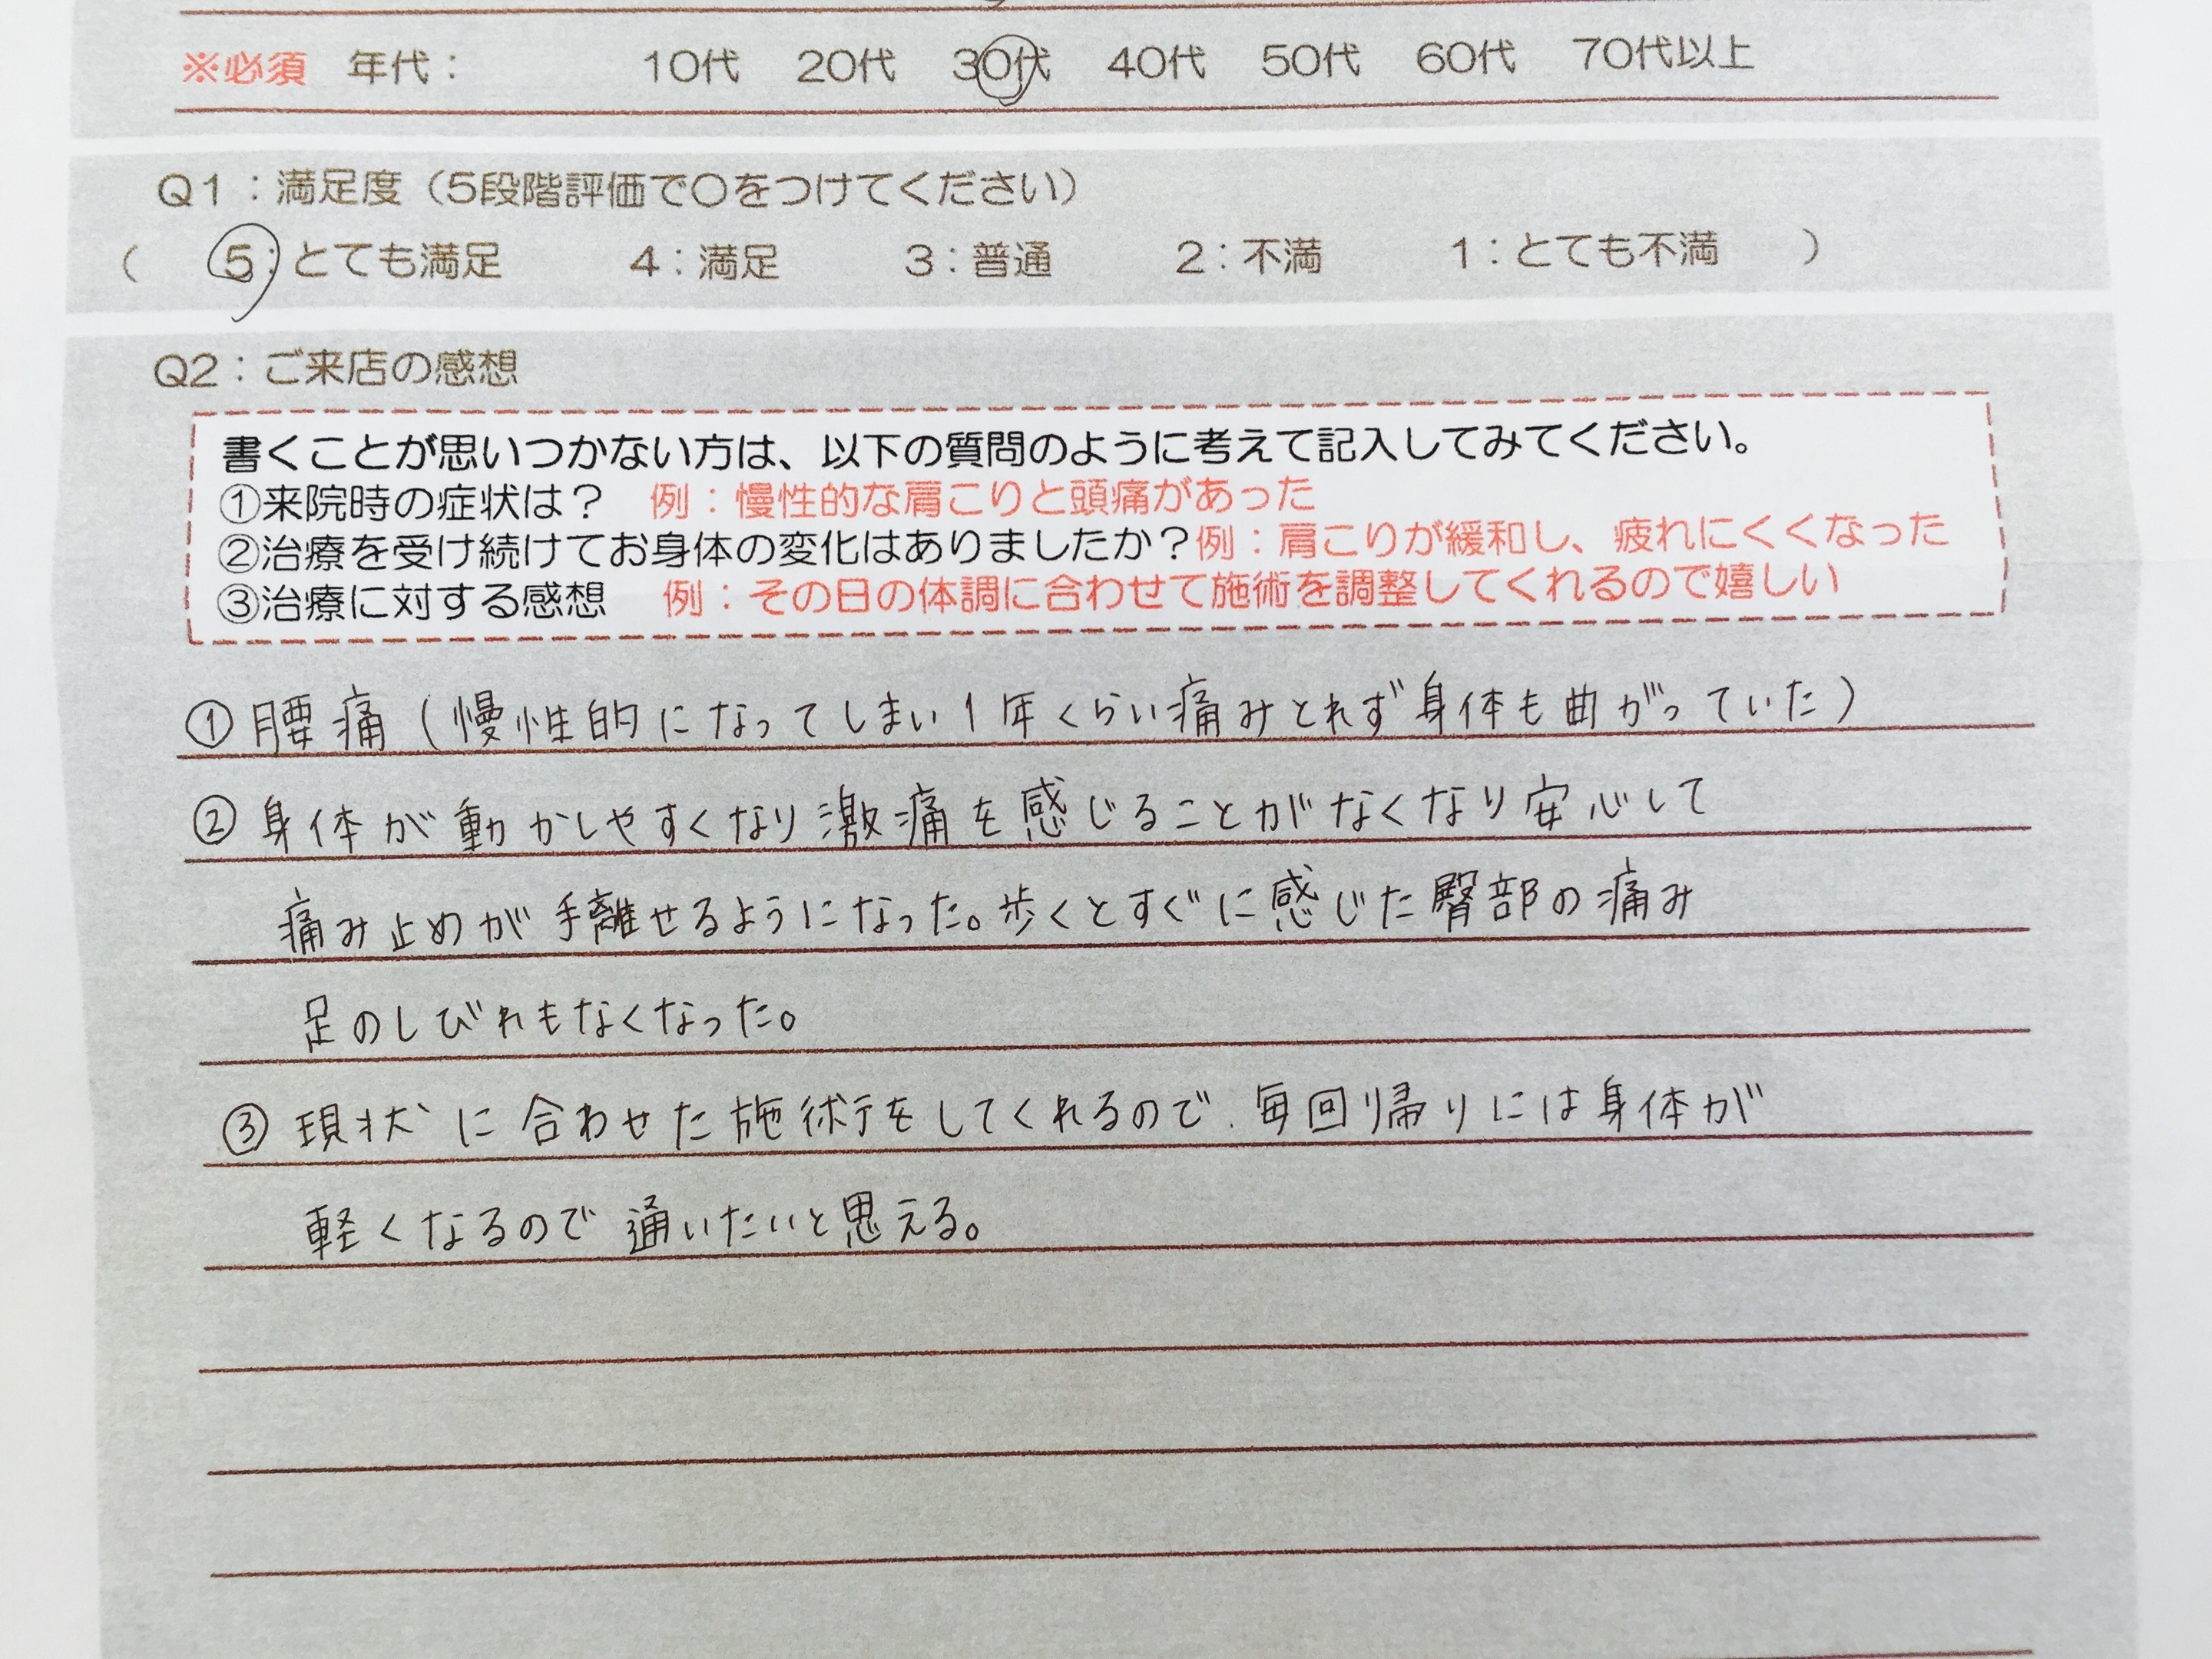 ※必須 年代： 10代 20代 30代 40代 50代 60代 70代以上
Q1：満足度（5段階評価で〇をつけてください）
（ 5：とても満足 4：満足 3：普通 2：不満 1：とても不満 ）
Q2：ご来店の感想
書くことが思いつかない方は、以下の質問のように考えて記入してみてください。
①来院時の症状は？ 例：慢性的な肩こりと頭痛があった
②治療を受け続けてお身体の変化はありましたか？例：肩こりが緩和し、疲れにくくなった
③治療に対する感想 例：その日の体調に合わせて施術を調整してくれるので嬉しい
①腰痛（慢性的になってしまい1年くらい痛みとれず身体も曲がっていた）
②身体が動かしやすくなり激痛を感じることがなくなり安心して
痛み止めが手離せるようになった。歩くとすぐに感じた臀部の痛み
足のしびれもなくなった。
③現状に合わせた施術をしてくれるので、毎回帰りには身体が
軽くなるので通いたいと思える。